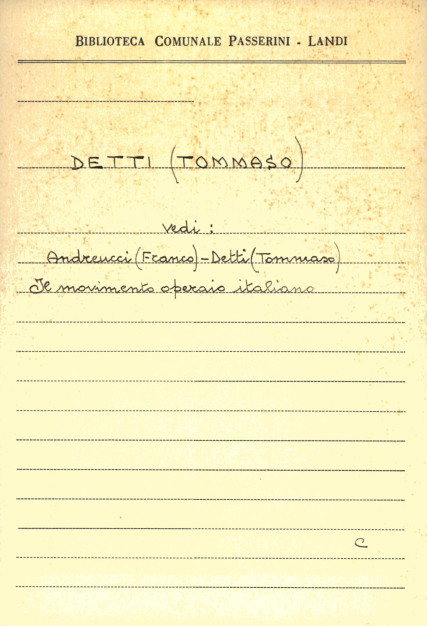 BIBLIOTECA COMUNALE PASSERINI - LANDI
DETTI (TOMMASO)
vedi :
Andreucci (Franco) - Detti (Tommaso)
Il movimento operaio italiano
C